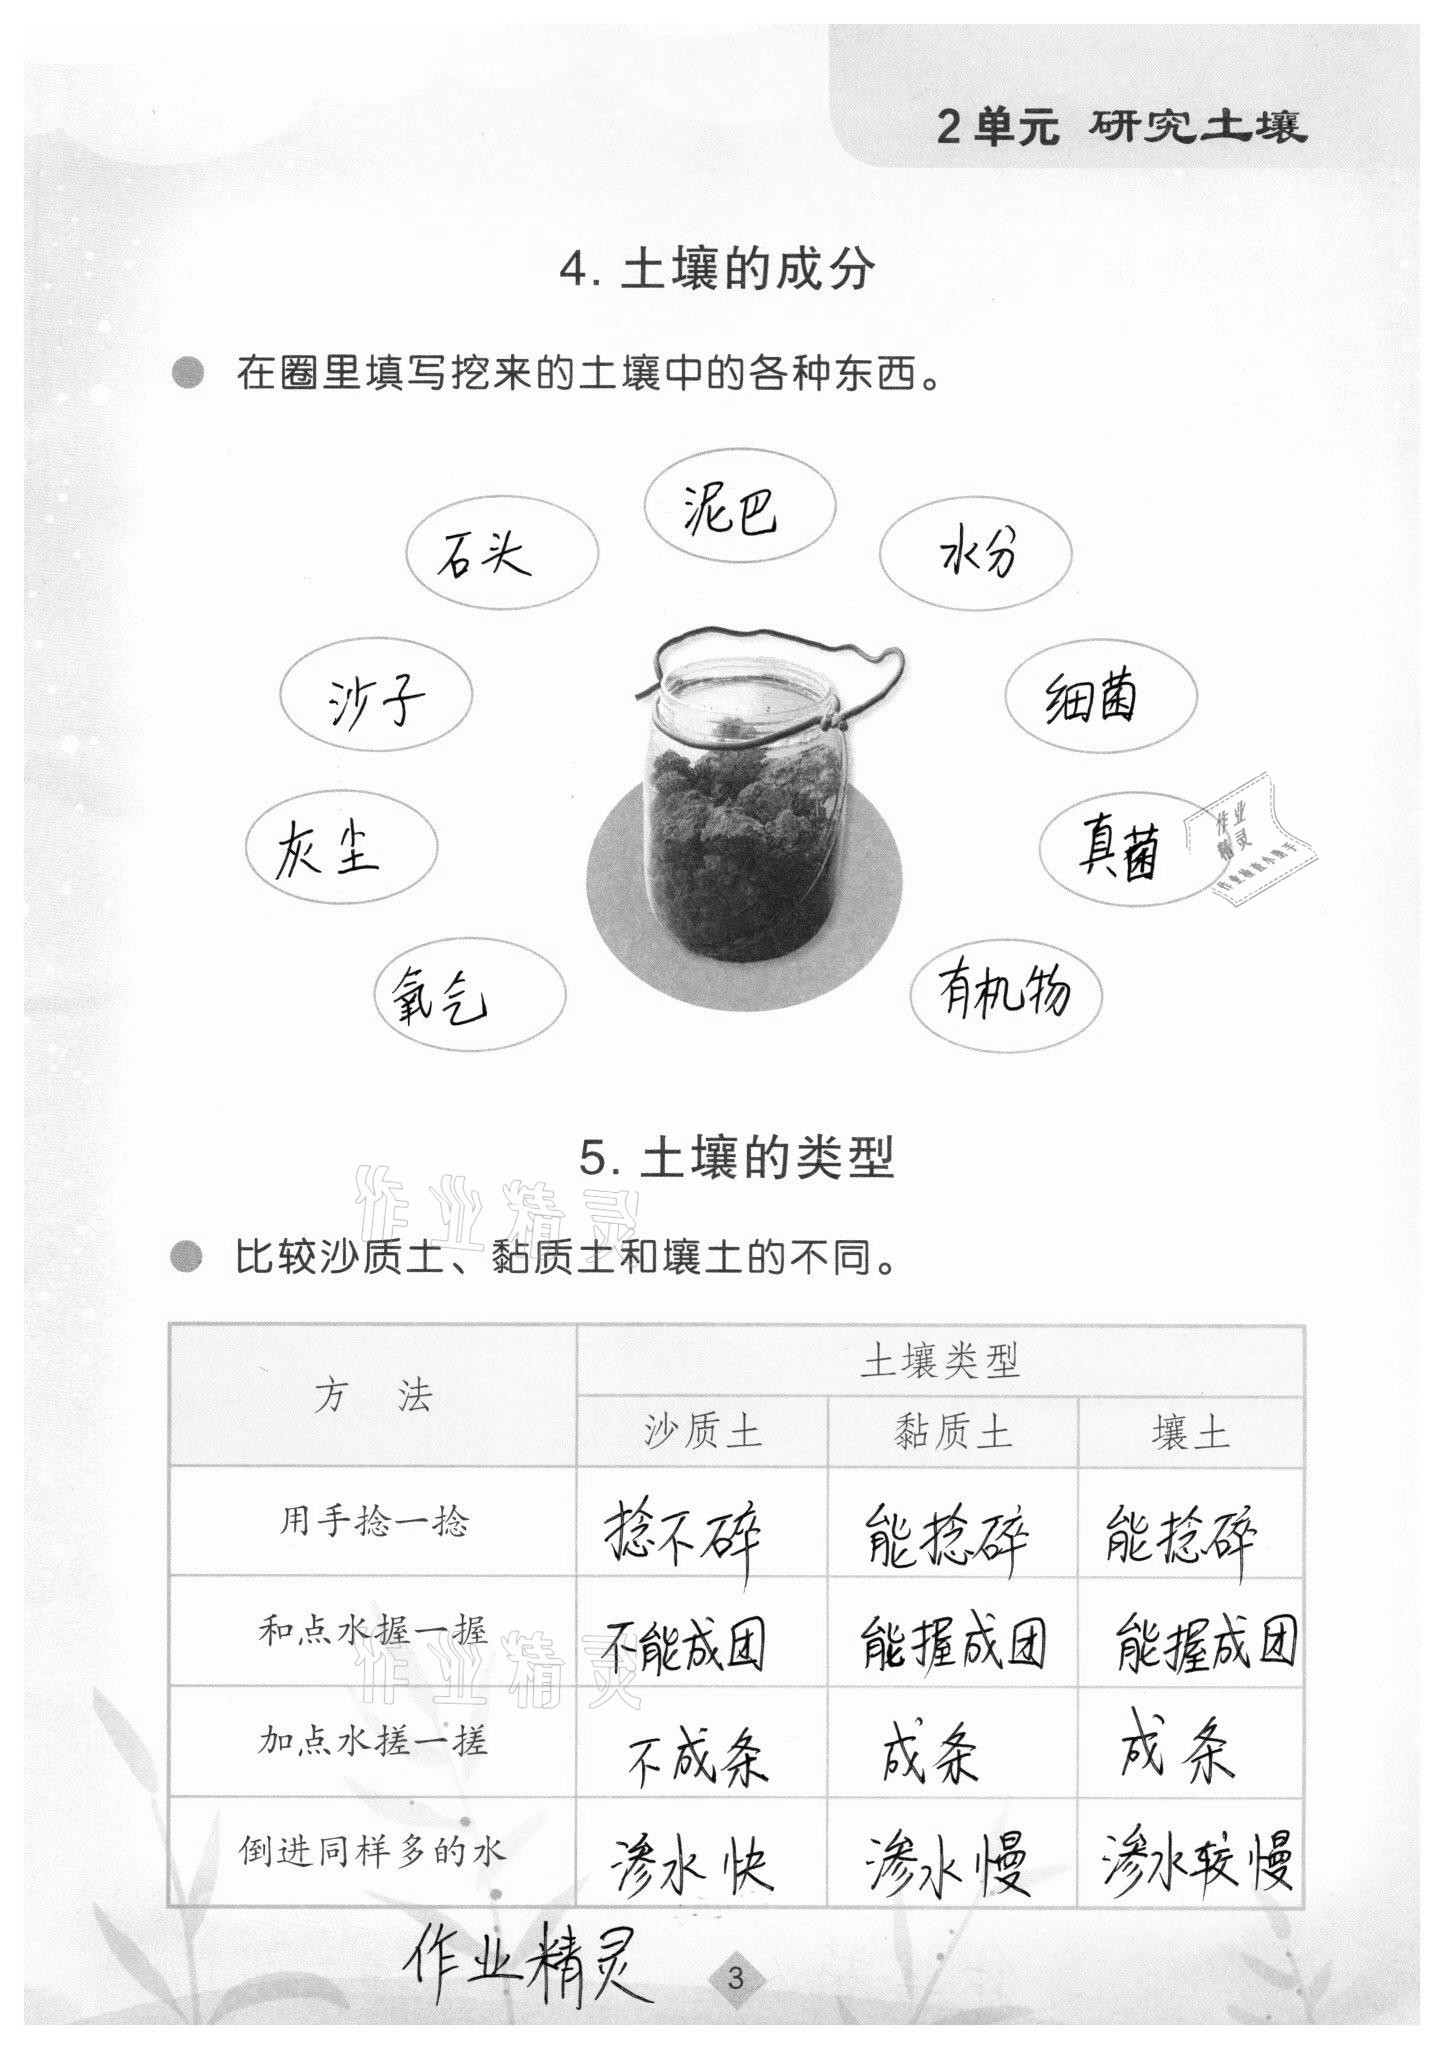 2单元 研究土壤
4. 土壤的成分
在圈里填写挖来的土壤中的各种东西。
泥巴
石头
水分
沙子
细菌
灰尘
真菌
作业
精灵
氧气
有机物
5. 土壤的类型
作业精灵
比较沙质土、黏质土和壤土的不同。
方 法 土壤类型
沙质土 黏质土 壤土
用手捻一捻 捻不碎 能捻碎 能捻碎
和点水握一握 不能成团 能握成团 能握成团
作业精灵
加点水搓一搓 不成条 成条 成条
倒进同样多的水 渗水快 渗水慢 渗水较慢
作业精灵
3